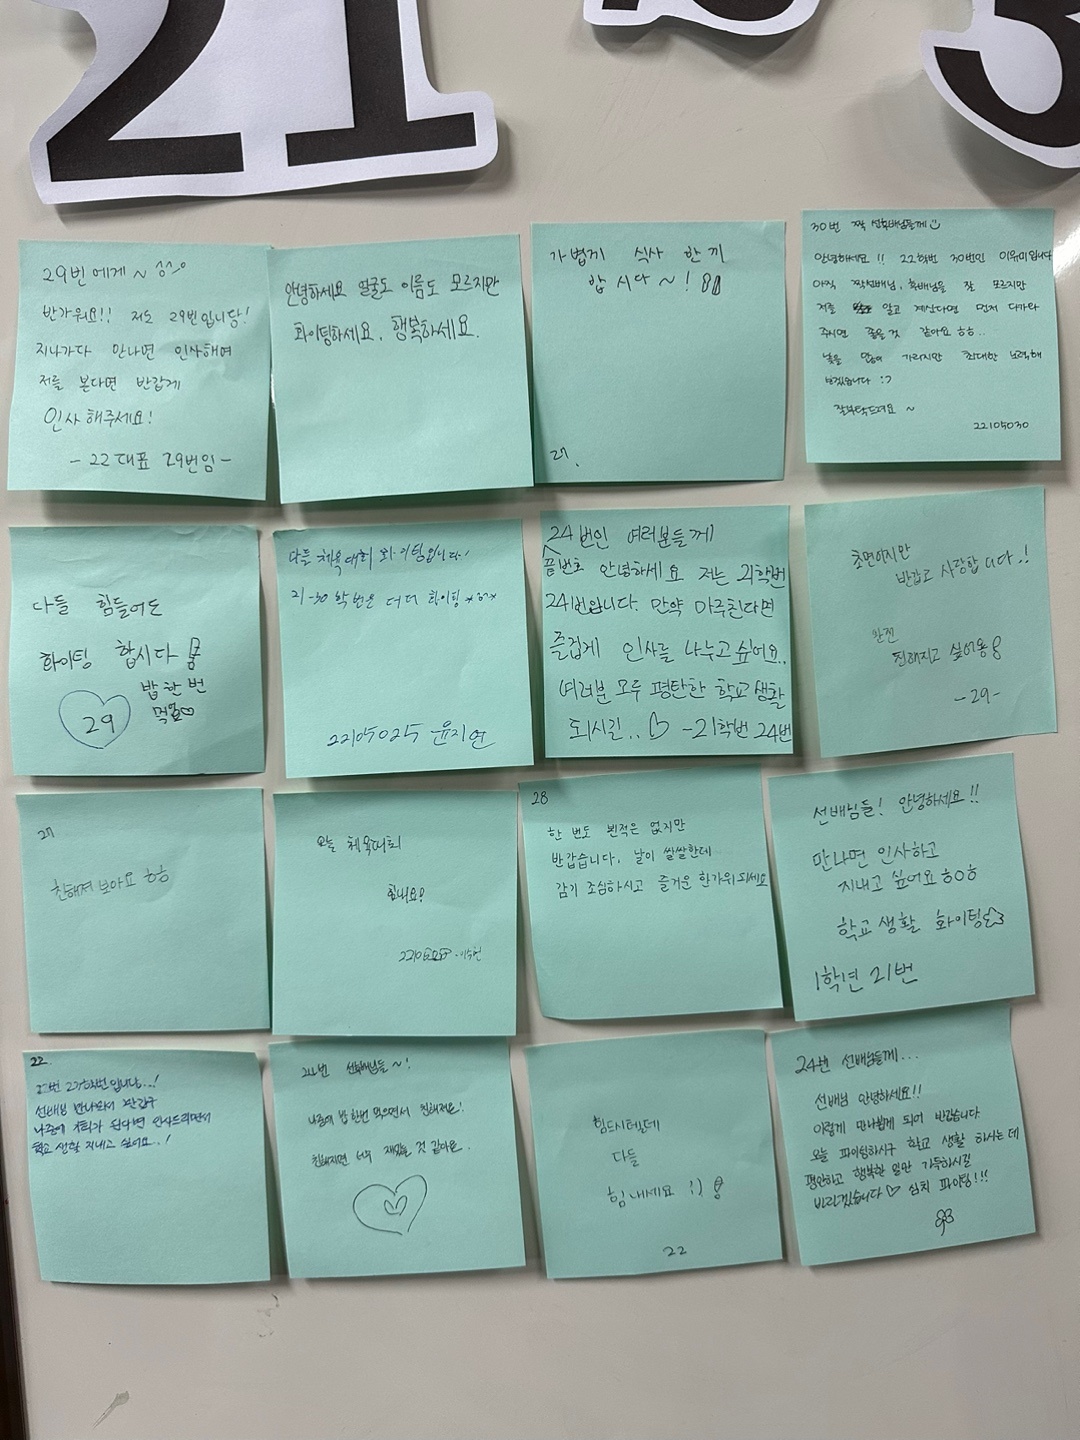 21
3
29번에게~ ^^
반가워요!! 저도 29번입니당!
지나가다 만나면 인사해여
저를 본다면 반갑게
인사해주세요!
- 22대표 29번임 -
안녕하세요 얼굴도 이름도 모르지만
화이팅하세요. 행복하세요.
가볍게 식사 한 끼
합시다~!
27.
30번 짝 선후배님들께
안녕하세요!! 22학번 30번인 이유미입니다
아직 짝선배님, 후배님을 잘 모르지만
저를 알고 계신다면 먼저 다가와
주시면 좋을것 같아요 ㅎㅎ..
낯을 많이 가리지만 최대한 노력해
보겠습니다 :)
잘부탁드려요 ~
22105030
다들 힘들어도
화이팅 합시다
밥 한 번
먹어요♡
29
다들 체육대회 화이팅입니다!
21-30 학번은 더더 화이팅
22105025 윤지연
24번인 여러분들께
끝번호 안녕하세요 저는 21학번
24번입니다. 만약 마주친다면
즐겁게 인사를 나누고 싶어요..
여러분 모두 평탄한 학교생활
되시길.. -21학번 24번
초면이지만
반갑고 사랑합니다.!
완전
친해지고 싶어용
-29-
27
친해져 보아요 ㅎㅎ
오늘 체육대회
힘내요!
28
한 번도 뵌적은 없지만
반갑습니다. 날이 쌀쌀한데
감기 조심하시고 즐거운 한가위 되세요
선배님들! 안녕하세요!!
만나면 인사하고
지내고 싶어요 ㅎㅇㅎ
학교 생활 화이팅
1학년 21번
22
22번 입니다..!
선배님 만나봬서 반갑구
나중에 기회가 된다면 인사드리면서
학교 생활 지내고 싶어요.!
24번 선후배님들~!
나중에 밥 한번 먹으면서 친해져요!
친해지면 너무 재밌을 것 같아요.
힘드시텐데
다들
힘내세요 :)
22
24번 선배님들께...
선배님 안녕하세요!!
이렇게 만나뵙게 되어 반갑습니다
오늘 화이팅하시구 학교 생활 하시는데
평안하고 행복한 일만 가득하시길
바라겠습니다♡ 심치 파이팅!!!